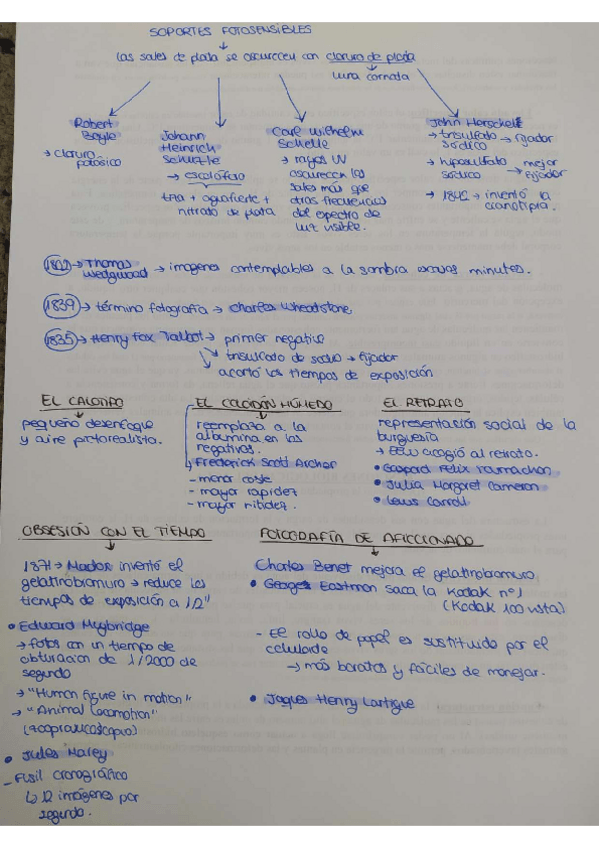 SOPORTES FOTOSENSIBLES
las sales de plata se oscurecen con cloruro de plata
luna cornata
Robert
Boyle
→ cloruro
potásico
Johann
Heinrich
Schultze
→ escalóforo
tiza + aguafuerte +
nitrato de plata
Carl Wilhelm
Schelle
→ rayos UV
oscurecen las
sales más que
otras frecuencias
del espectro de
luz visible.
John Herschell
→ trisulfato → fijador
sódico
→ hiposulfato → mejor
sódico fijador
→ 1842 → inventó la
cianotipia.
→ Thomas
Wedgwood → imágenes contemplables a la sombra escasos minutos.
1839 → término fotografía → Charles Wheatstone
1835 → Henry Fox Talbot → primer negativo
trisulfato de sodio → fijador
acortó los tiempos de exposición
EL CALOTIPO
pequeño desenfoque
y aire pictorealista.
EL COLODIÓN HÚMEDO
reemplaza a la
albumina en los
negativos.
Frederick Scott Archer
- menor coste
- mayor rapidez
- mayor nitidez.
EL RETRATO
representación social de la
burguesía
→ EEUU acogió al retrato.
• Gaspard Félix
• Julia Margaret Cameron
• Lewis Carroll
OBSESIÓN CON EL TIEMPO
1871 → Maddox inventó el
gelatinobromuro → reduce los
tiempos de exposición a 1/2"
• Edward Muybridge
→ fotos con un tiempo de
obturación de 1/2000 de
segundo
→ "Human figure in motion"
→ "Animal Locomotion"
(zoopraxiscopio)
• Jules Marey
- Fusil cronográfico
↳ 12 imágenes por
segundo.
FOTOGRAFÍA DE AFICCIONADO
Charles Benet mejora el gelatinobromuro
• Georges Eastmon saca la Kodak nº1
(Kodak 100 vista)
- El rollo de papel es sustituido por el
celuloide
→ más baratos y fáciles de manejar.
• Jaques Henry Lartigue